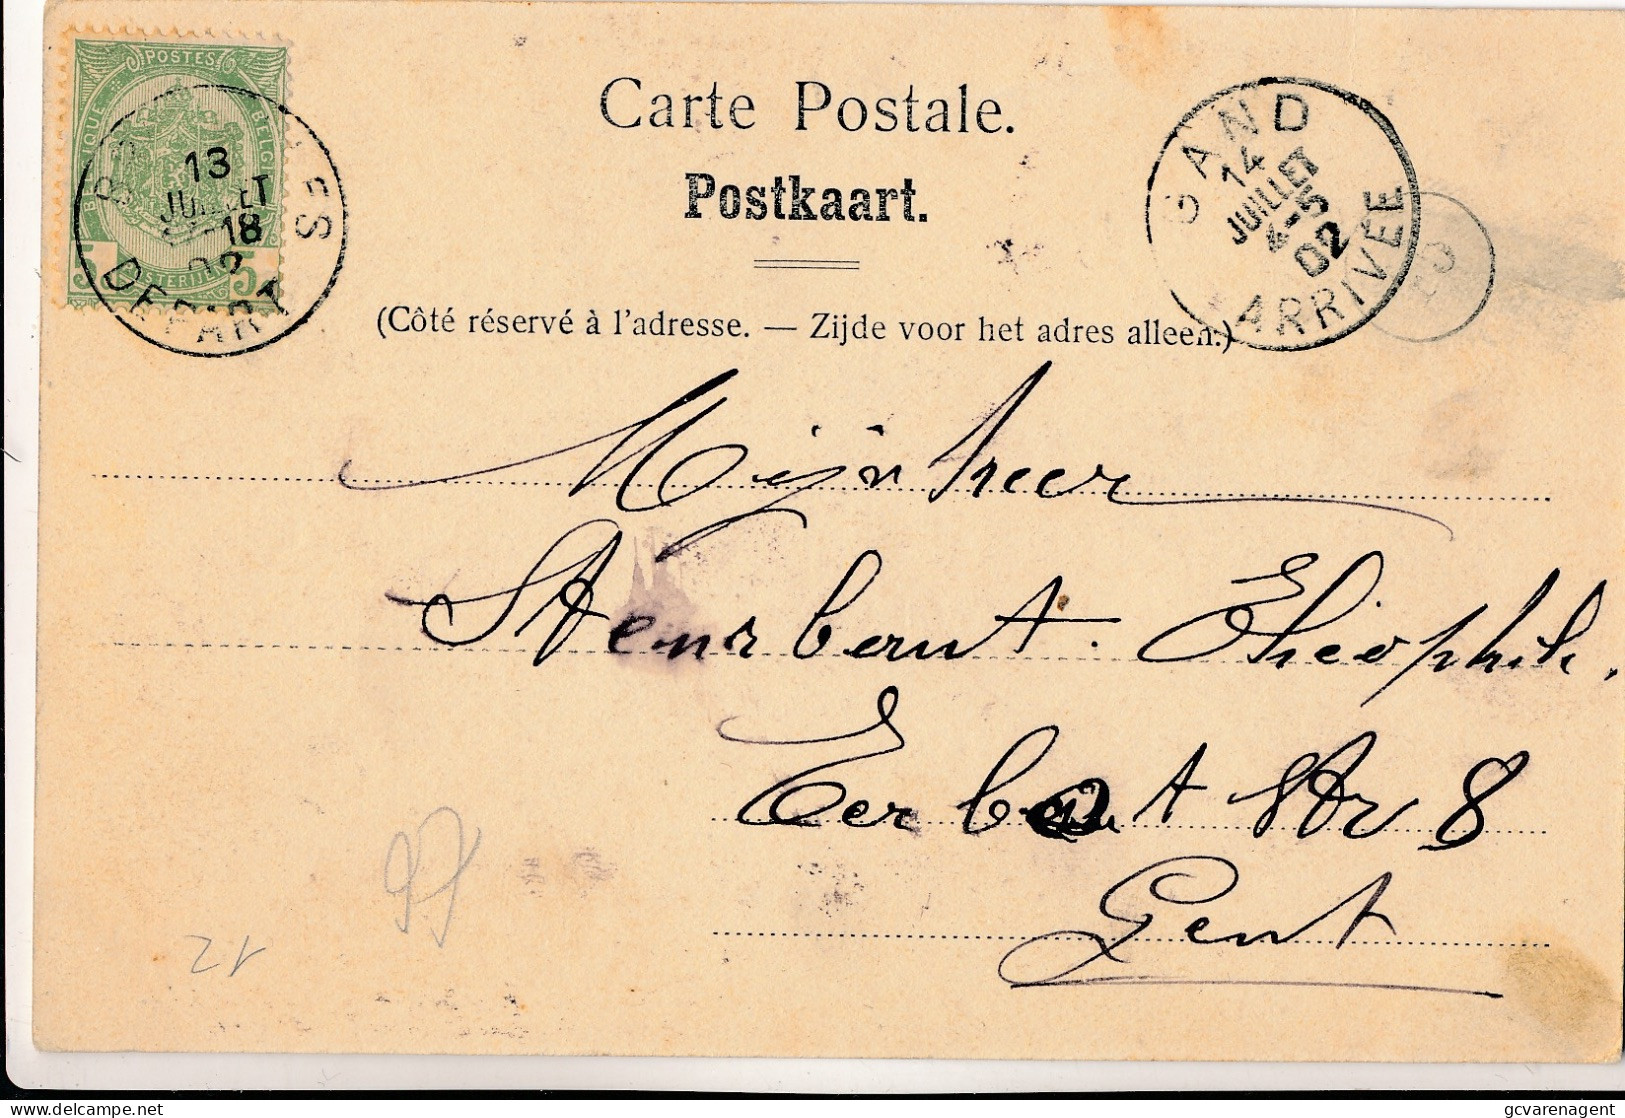 POSTES
BELGIQUE
13
JUILLET
18
02
DEPART
5
5
Carte Postale.
Postkaart.
GAND
14
JUILLET
4-5
02
ARRIVÉE
(Côté réservé à l'adresse. — Zijde voor het adres alleen.)
Mijnheer
Theophile.
Str 8
Gent
21
delcampe.net
gcvarenagent